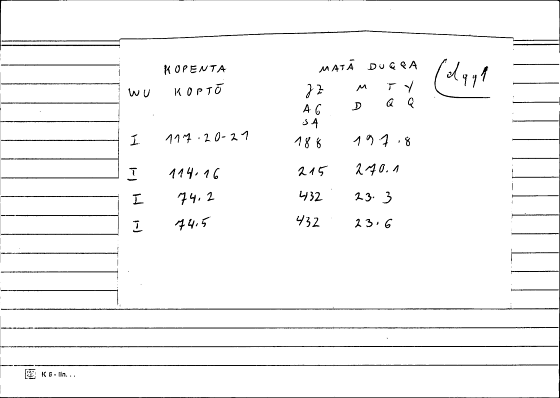 KOPENTA MATĀ DUQQA (dqq1
WU KOPTŪ JZ M T Y
AG D Q Q
SA
I 117.20-21 188 197.8
I 114.16 215 270.1
I 74.2 432 23.3
I 74.5 432 23.6
K 6 - lin...